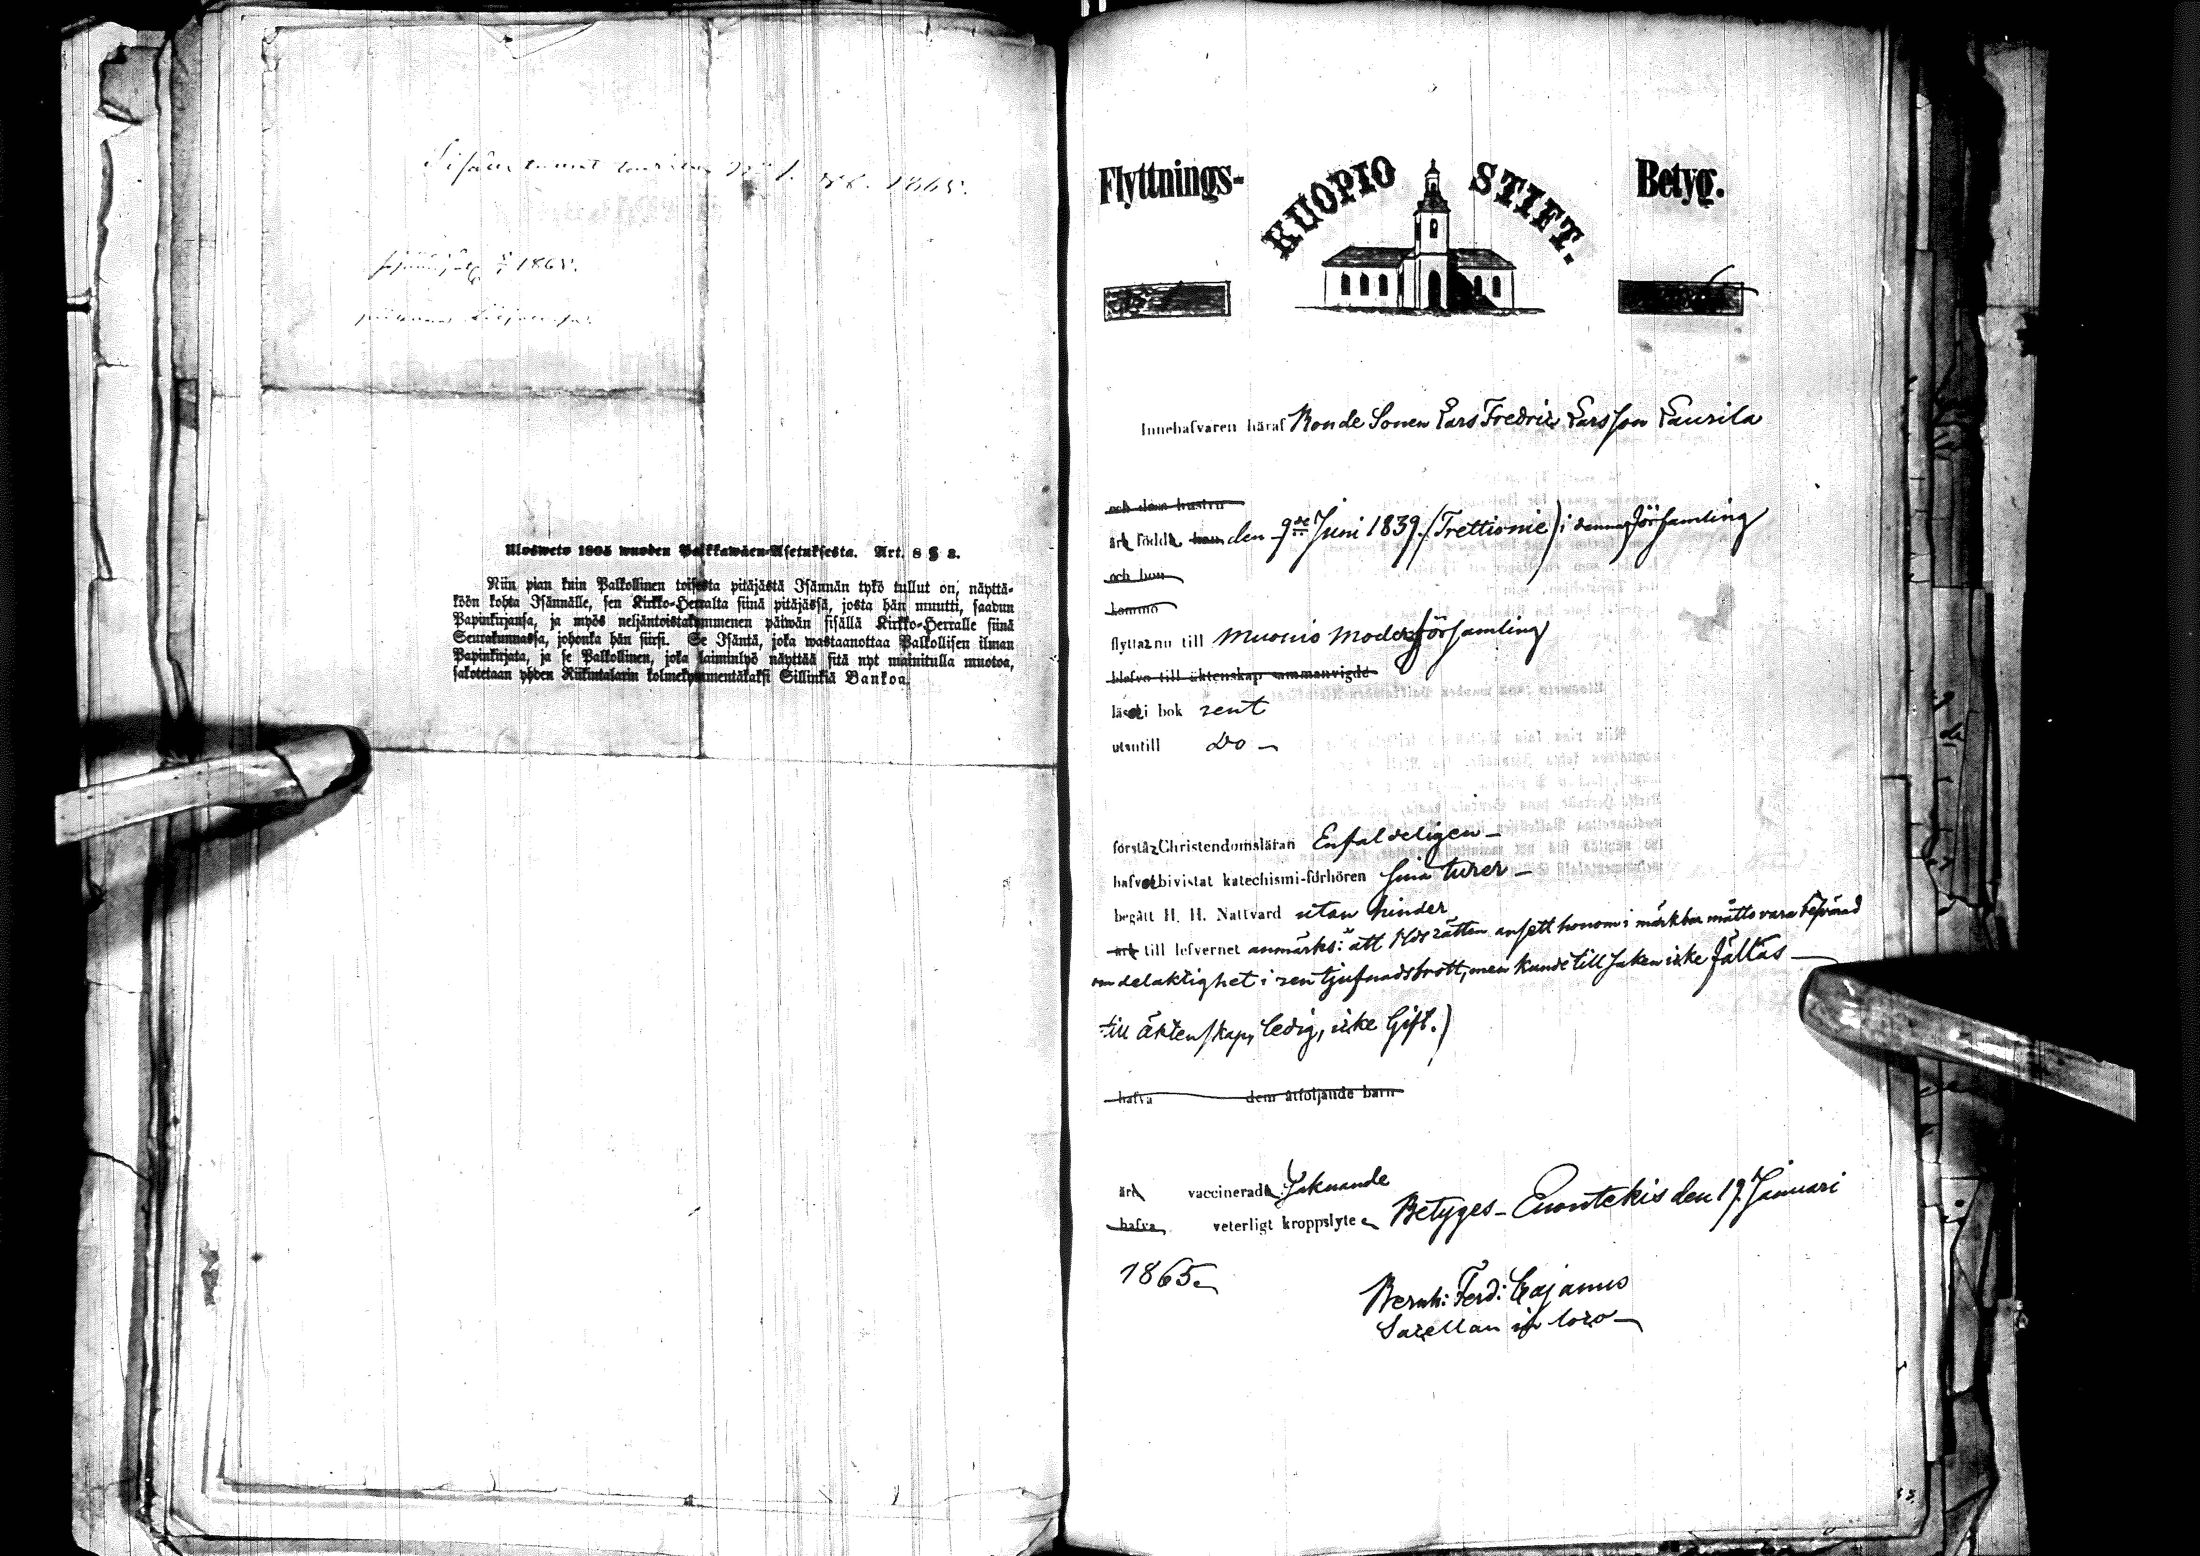 1865.
1865.
Ulosweto 1805 wuoden Palkkawäen-Asetuksesta. Art. 8 § 3.
Niin pian kuin Palkollinen toisesta pitäjästä Isännän tykö tullut on, näyttä-
köön kohta Isännälle, sen Kirkko-Herralta siinä pitäjässä, josta hän muutti, saadun
Papinkirjansa, ja myös neljäntoistakymmenen päiwän sisällä Kirkko-Herralle siinä
Seurakunnassa, johonka hän siirsi. Se Isäntä, joka wastaanottaa Palkollisen ilman
Papinkirjata, ja se Palkollinen, joka laiminlyö näyttää sitä nyt mainitulla muotoa,
sakotetaan yhden Riikintalarin kolmekymmentäkaksi Sillinkiä Bankoa.
Flyttnings- KUOPIO STIFT. Betyg.
Innehafvaren häraf Bonde Sonen Lars Fredric Larsson Laurila
och dess hustru
äro födde han den 9de Juni 1839. (Trettionie) i denna församling
och hon
komne
flyttar nu till Muonio Moderförsamling
blefvo till äktenskap sammanvigde
läser i bok rent
utantill Do
förstår Christendomsläran Enfaldeligen
hafver bivistat katechismi-förhören sina turer
begått H. H. Nattvard utan hinder
äro till lefvernet anmärks: att Hds rätten ansett honom i märkbar måtto vara besvärad
om delaktighet i rentjufnadsbrott, men kunde till saken icke fällas
till äktenskap, ledig, icke Gift.)
hafva dem åtföljande barn
äro vaccinerade Saknande
hafva veterligt kroppslyte Betyges Enontekis den 19 Januari
1865.
Bernh: Ferd: Cajanus
Sacellan in loco